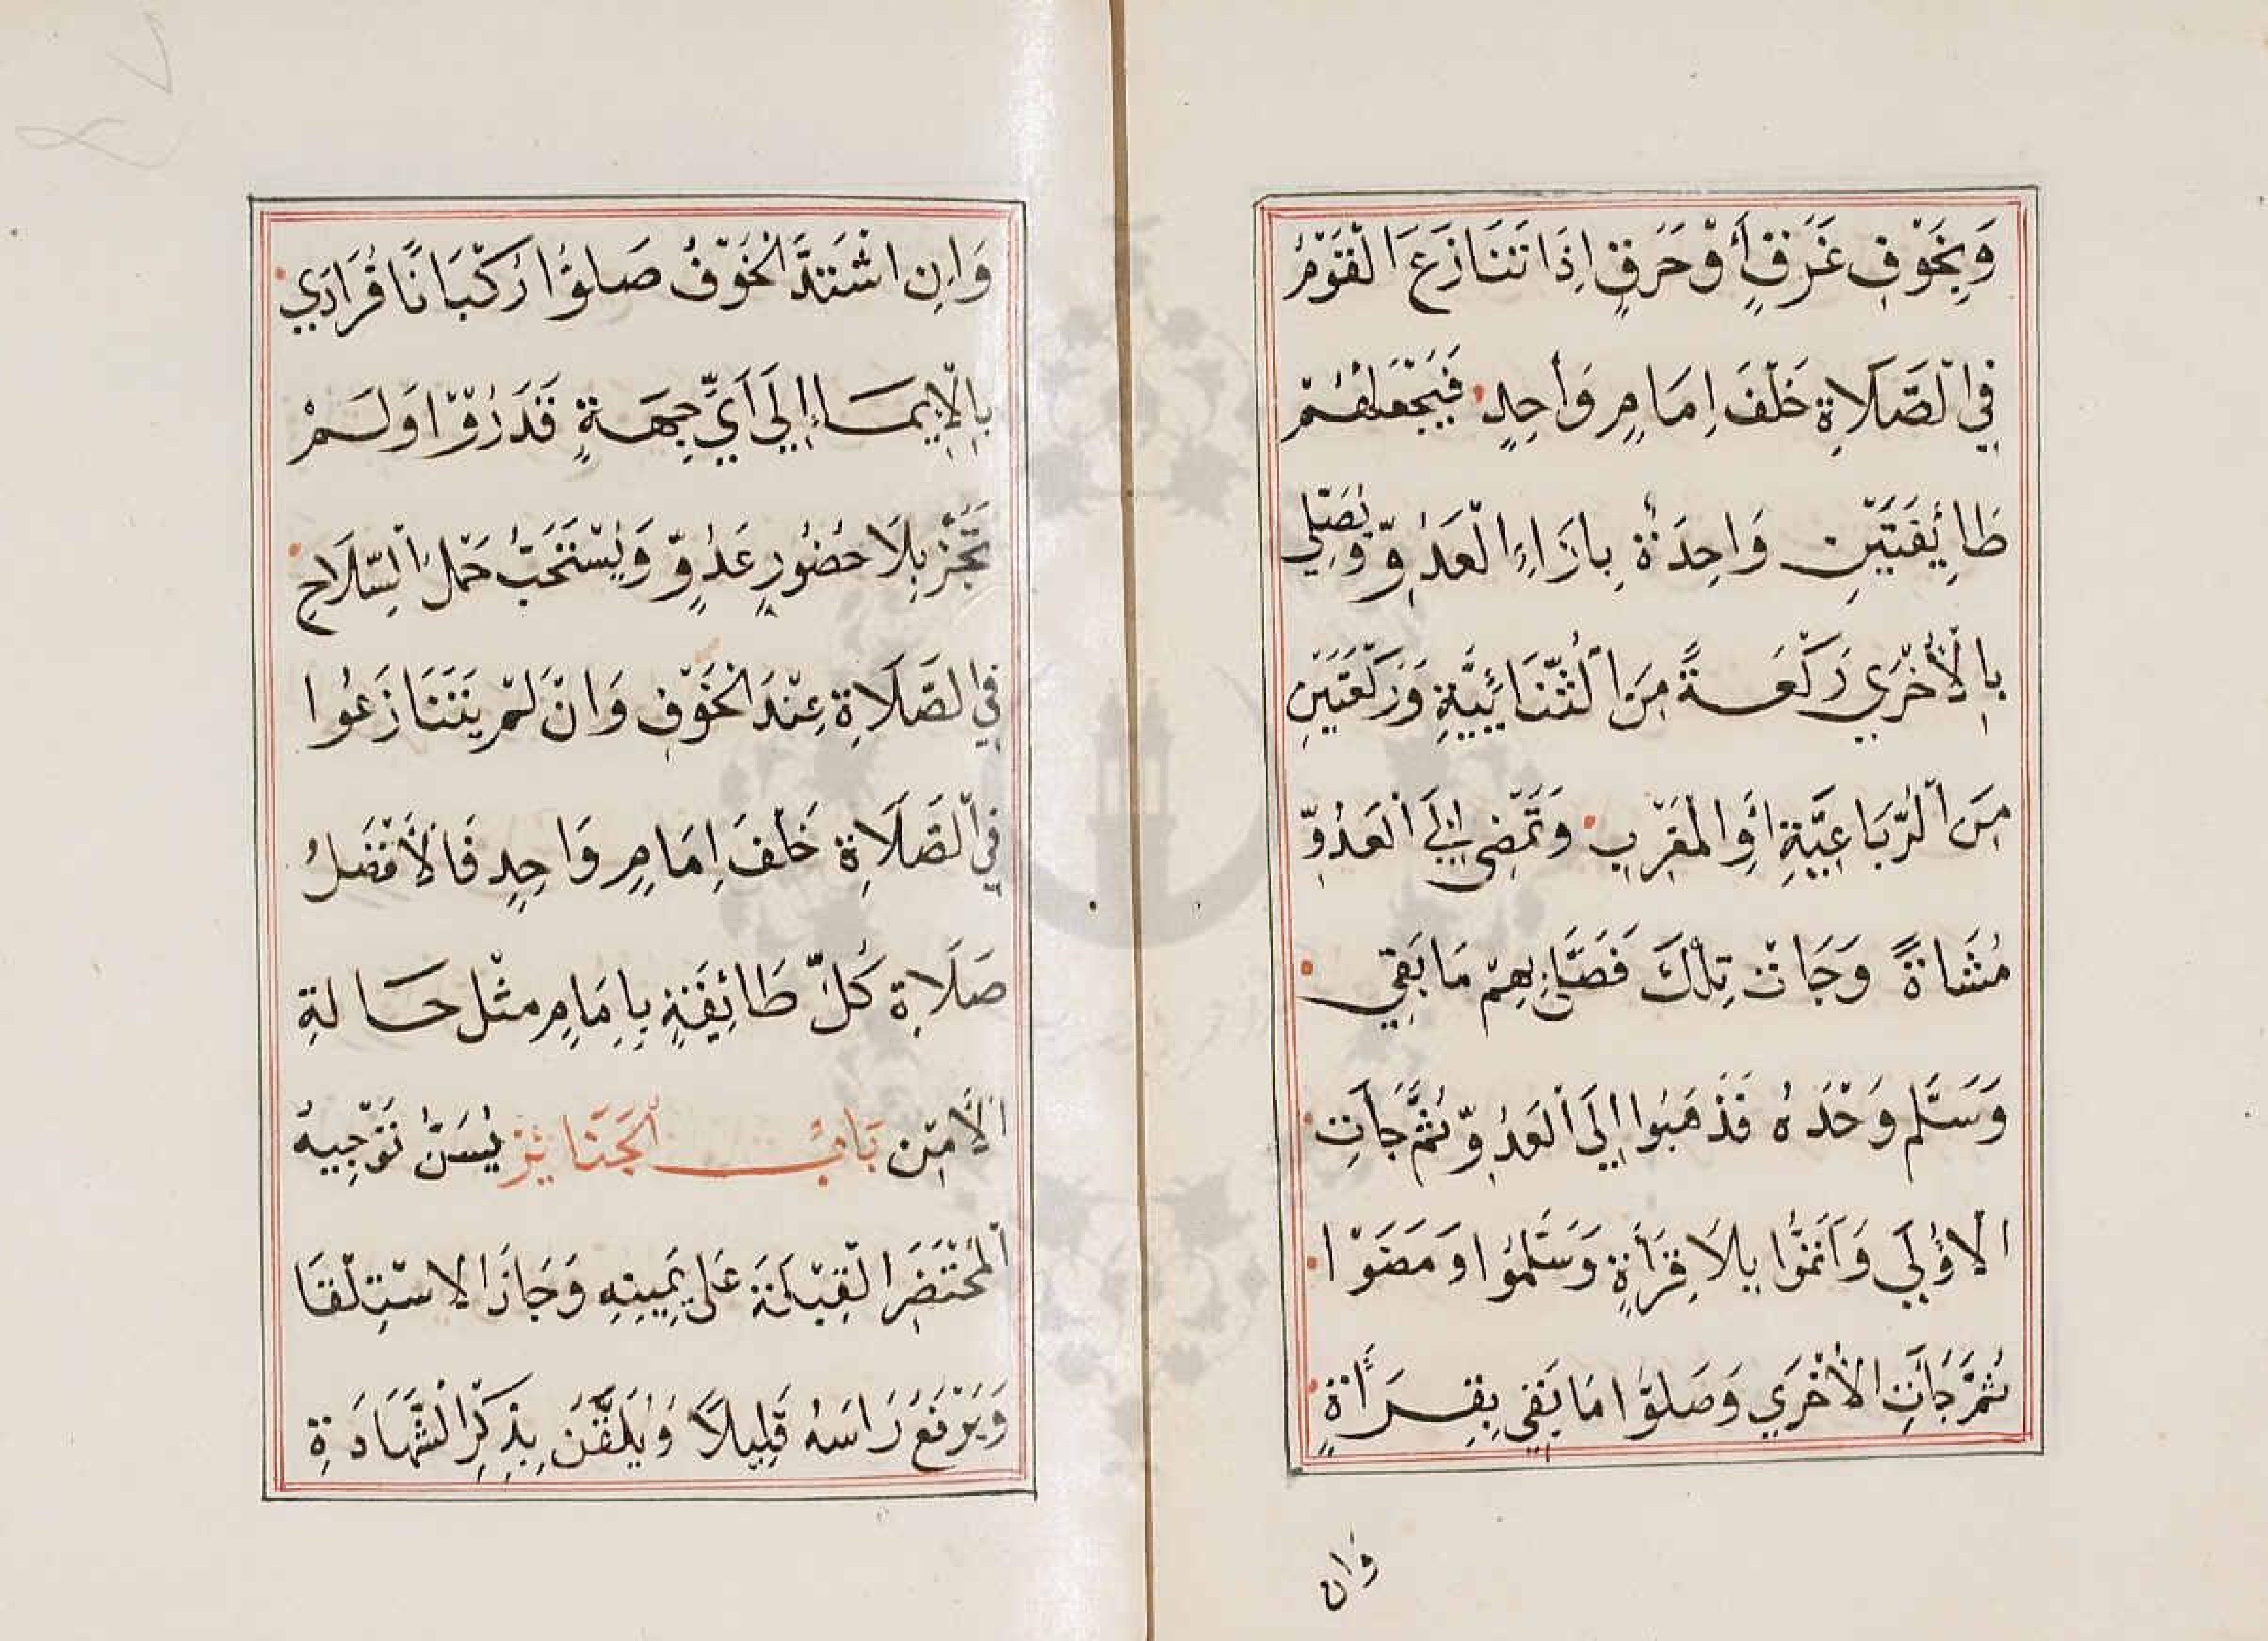 وَبِخَوْفِ غَرَقٍ أَوْ حَرَقٍ اِذَا تَنَازَعَ الْقَوْمُ
فِي الْصَّلَاةِ خَلْفَ اِمَامٍ وَاحِدٍ فَيَجْعَلُهُمْ
طَائِفَتَيْنِ وَاحِدَةٌ بِازَاءِ الْعَدُوِّ وَيُصَلِّي
بِالْأُخْرَي رَكْعَةً مِنَ الْثُّنَائِيَّةِ وَرَكْعَتَيْنِ
مِنَ الْرُّبَاعِيَّةِ اَوِ الْمَغْرِبِ وَتَمْضِى اِلَي الْعَدُوِّ
مُشَاةً وَجَاتْ تِلْكَ فَصَلَّي بِهِمْ مَا بَقِيَ
وَسَلَّم وَحْدَهُ فَذَهَبُوا اِلَي الْعَدُوِّ ثُمَّ جَأَتِ
الْاُوْلَي وَاَتَمُّوا بِلَا قِرَأَةٍ وَسَلَّمُوا وَمَضَوْا
ثُمَّ جَأَتِ الْأُخْرَي وَصَلُّوْا مَا بَقِي بِقِرَأَةٍ
وَان
وَاِنِ اشْتَدَّ الْخَوْفُ صَلُّوْا رُكْبَانًا فُرَادَي
بِالْاِيمَاءِ اِلَي اَيِّ جِهَةٍ قَدَرُوْا وَلَمْ
تَجُزْ بِلَا حُضُورِ عَدُوٍّ وَيُسْتَحَبُّ حَمْلُ الْسِّلَاحِ
فِي الصَّلَاةِ عِنْدَ الْخَوْفِ وَانْ لَمْ يَتَنَازَعُوا
فِي الْصَّلَاةِ خَلْفَ اِمَامٍ وَاحِدٍ فَالْاَفْضَلُ
صَلَاةِ كُلِّ طَائِفَةٍ بِاِمَامٍ مِثْل حَالَةِ
الْاَمْنِ بَابُ الْجَنَائِزِ يُسَنُّ تَوْجِيهُ
الْمُحْتَضَرِ الْقِبْلَةَ عَلَى يَمِينِهِ وَجَازَ الاسْتِلْقَا
وَيَرْفَعُ رَاسَهُ قَلِيلًا وَيُلَقَّنُ بِذِكْرِ الْشَّهَادَةِ